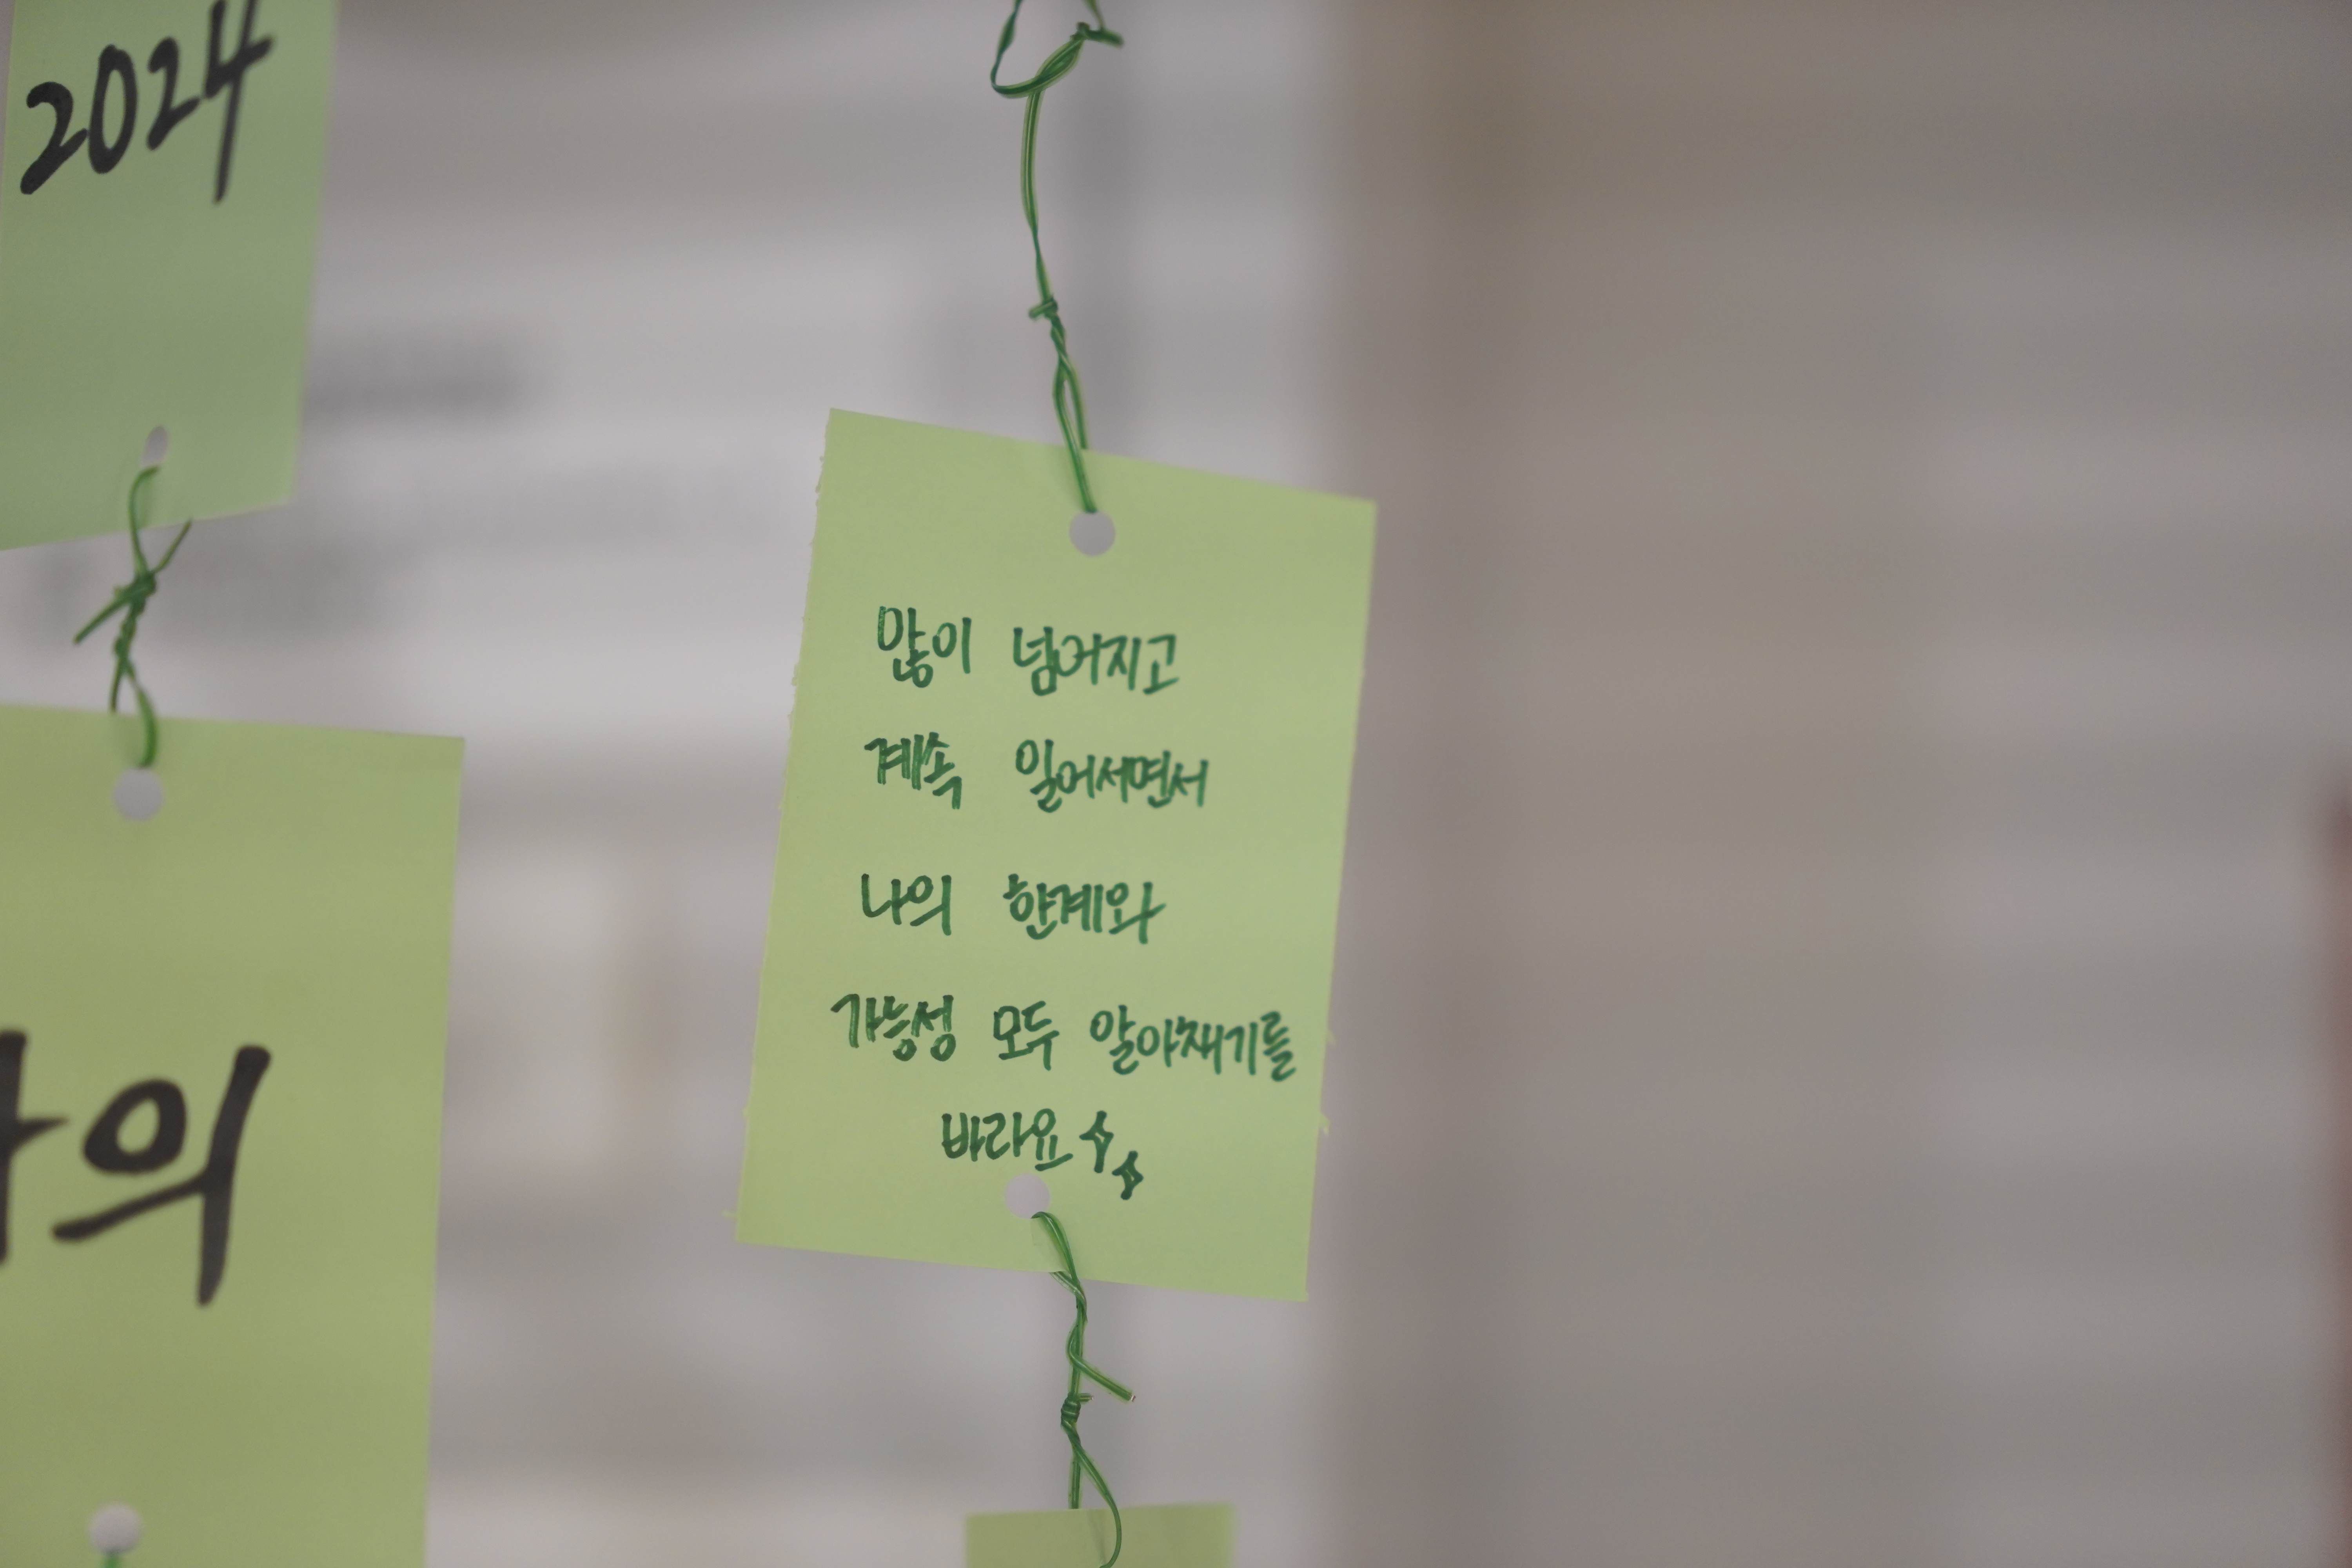 2024
의
많이 넘어지고
계속 일어서면서
나의 한계와
가능성 모두 알아채기를
바라요